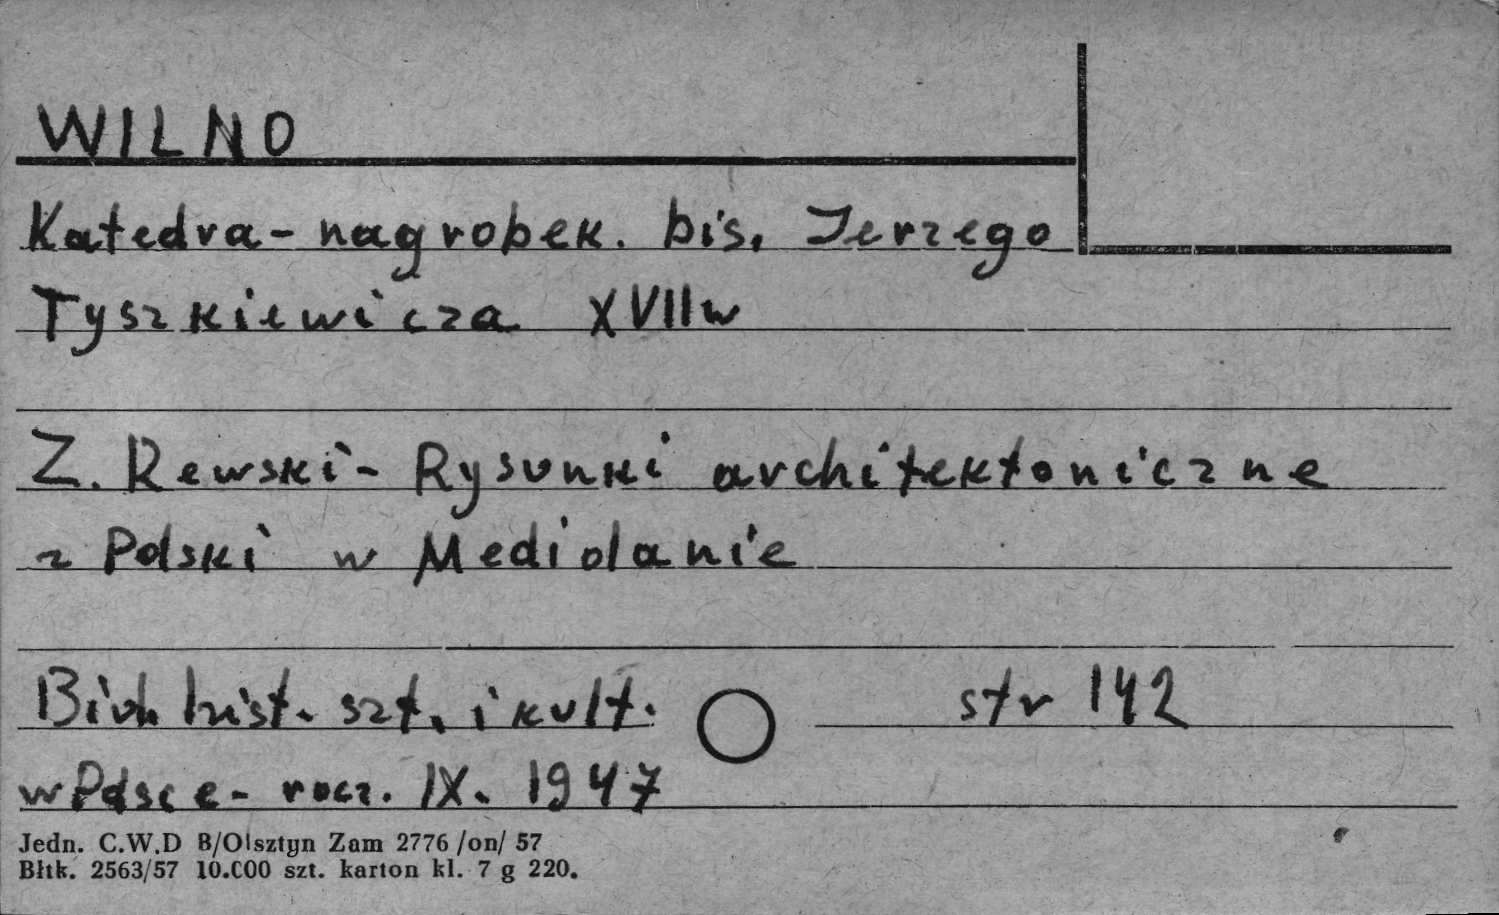 WILNO
Katedra - nagrobek. bis. Jerzego
Tyszkiewicza XVII w
Z. Rewski - Rysunki architektoniczne
z Polski w Mediolanie
Biul. hist. szt. i kult. str 142
w Polsce - rocz. IX. 1947
Jedn. C.W.D B/Olsztyn Zam 2776 /on/ 57
Błtk. 2563/57 10.000 szt. karton kl. 7 g 220.